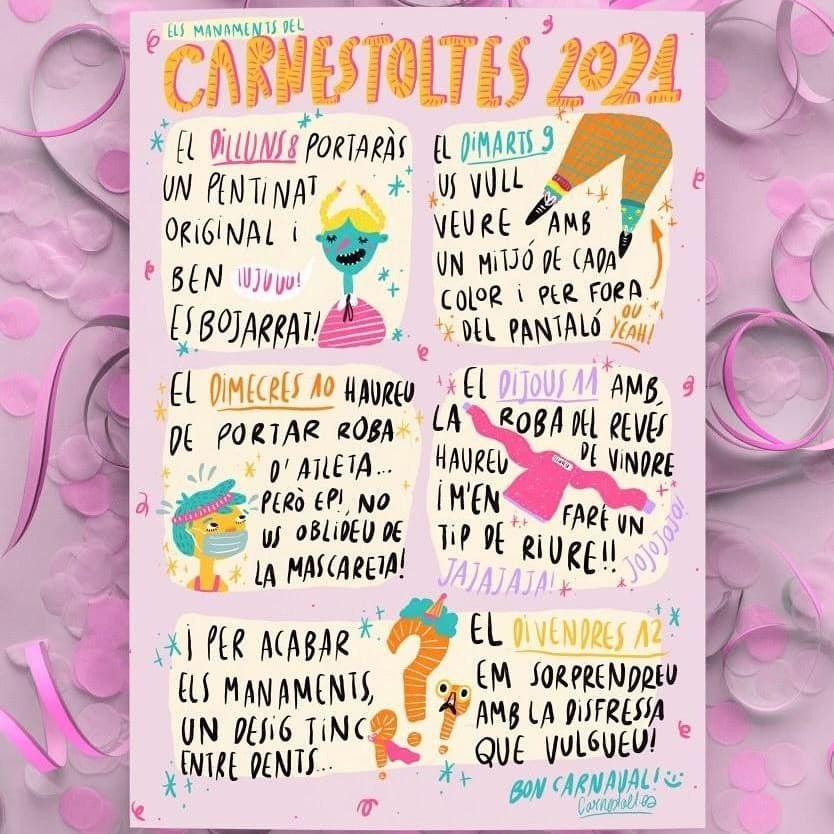 ELS MANAMENTS DEL
CARNESTOLTES 2021
EL DILLUNS 8 PORTARÀS
UN PENTINAT
ORIGINAL I
BEN
ESBOJARRAT!
IUJUUU!
EL DIMARTS 9
US VULL
VEURE AMB
UN MITJÓ DE CADA
COLOR I PER FORA
DEL PANTALÓ
OU
YEAH!
EL DIMECRES 10 HAUREU
DE PORTAR ROBA
D'ATLETA...
PERÒ EP!, NO
US OBLIDEU DE
LA MASCARETA!
EL DIJOUS 11 AMB
LA ROBA DEL REVÉS
HAUREU DE VINDRE
I M'EN FARÉ UN
TIP DE RIURE!!
JAJAJAJA!
JOJOJOJO!
I PER ACABAR
ELS MANAMENTS,
UN DESIG TINC
ENTRE DENTS...
EL DIVENDRES 12
EM SORPRENDREU
AMB LA DISFRESSA
QUE VULGUEU!
BON CARNAVAL!
Carnestoltes